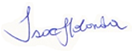 Isac Holanda